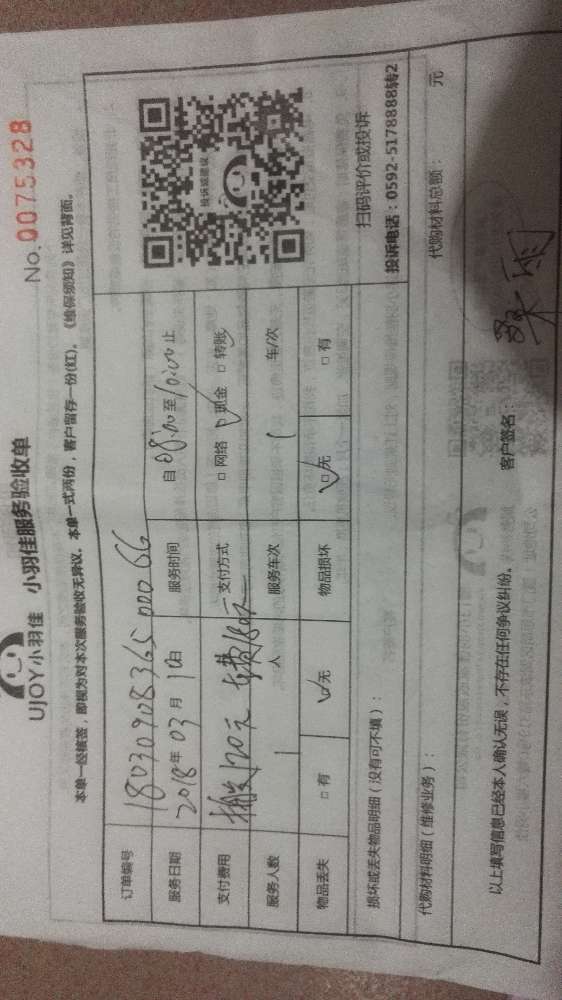 UJOY小羽佳 小羽佳服务验收单
No. 0075328
本单一经核签，即视为对本次服务验收无异议。本单一式两份，客户留存一份(红)。《维保须知》详见背面。
订单编号 18030908365 000 66
服务日期 2018年 03 月 10日 服务时间 自 08:00 至 10:00 止
支付费用 搬 120元 180元 支付方式 □ 网络 ☑ 现金 □ 转账
服务人数 1 人 服务车次 1 车/次
物品丢失 □ 有 ☑ 无 物品损坏 ☑ 无 □ 有
投诉或建议
扫码评价或投诉
投诉电话：0592-5178888转2
损坏或丢失物品明细（没有可不填）：
代购材料明细（维修业务）： 代购材料总额： 元
以上填写信息已经本人确认无误，不存在任何争议纠纷。 客户签名：